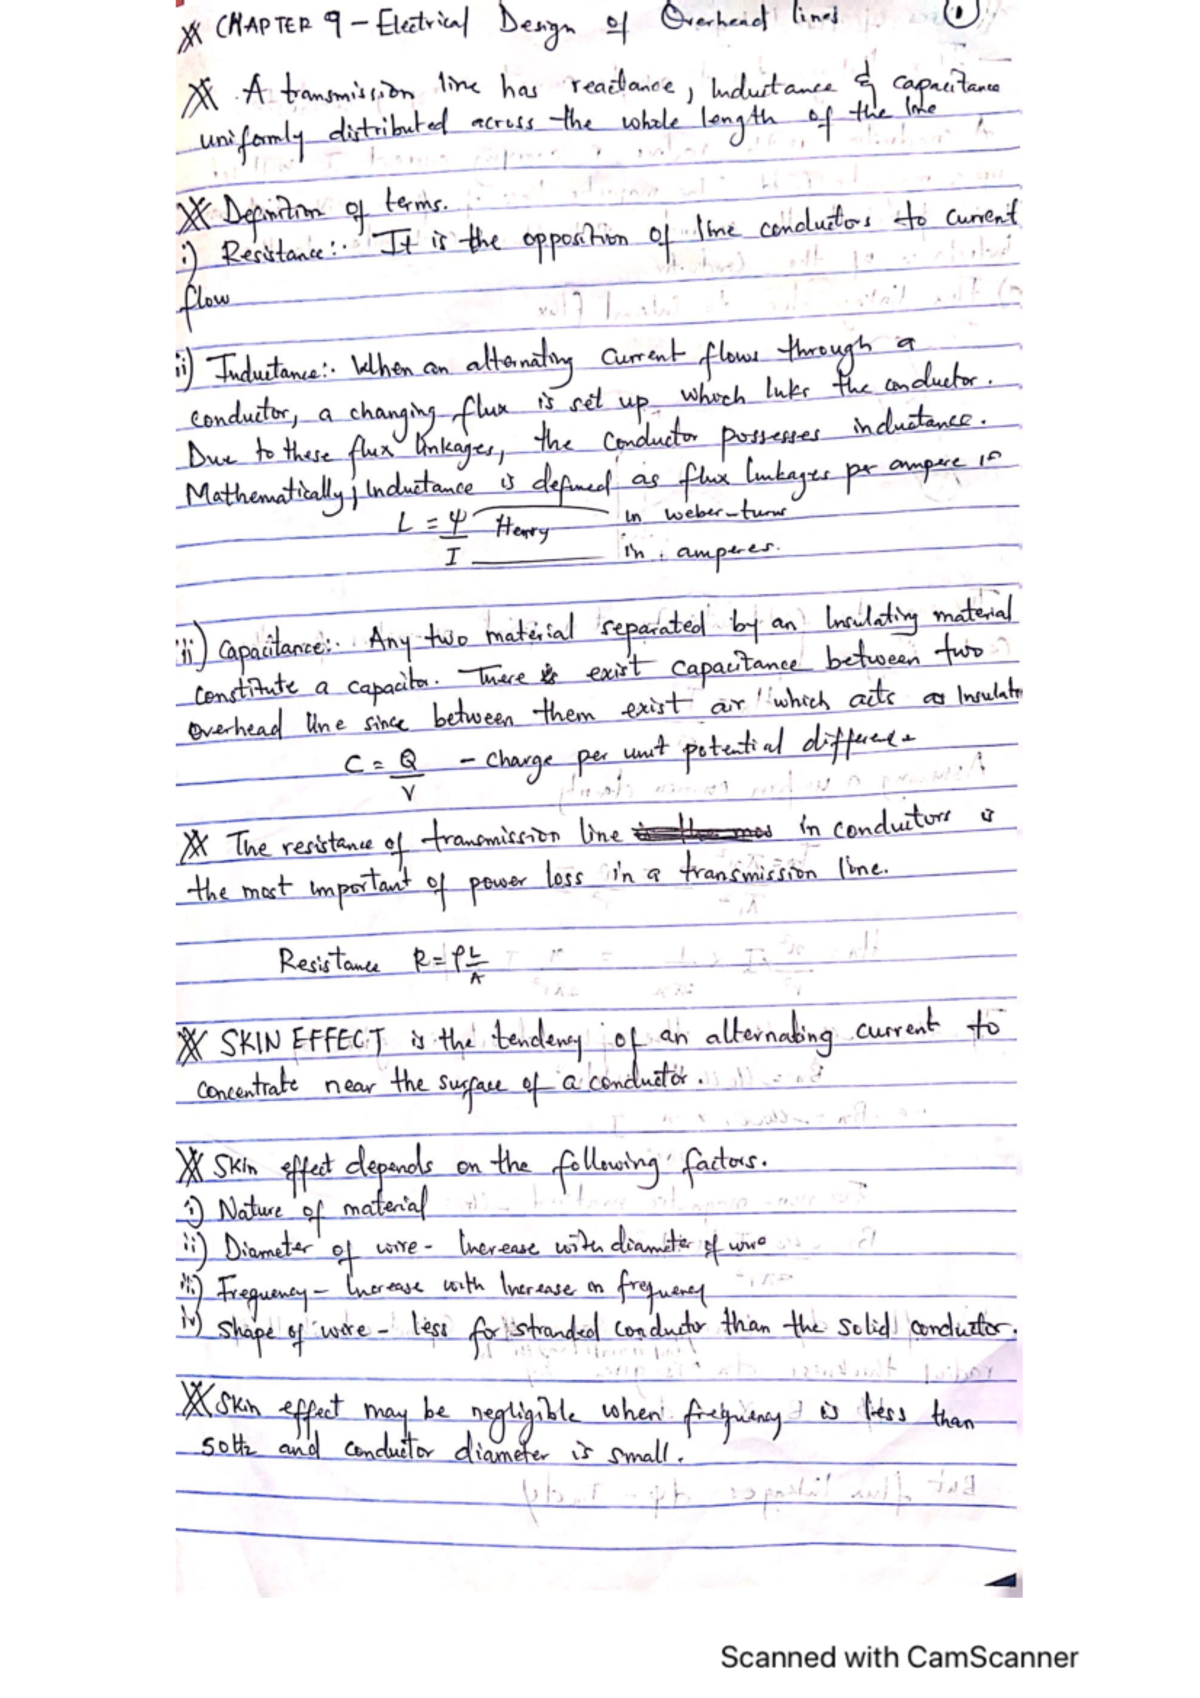 CHAPTER 9 - Electrical Design of Overhead lines 1
A transmission line has reactance, Inductance & capacitance
uniformly distributed across the whole length of the line
Definition of terms.
i) Resistance:. It is the opposition of line conductors to current
flow
ii) Inductance:. When an alternating current flows through a
conductor, a changing flux is set up which links the conductor.
Due to these flux linkages, the conductor possesses inductance.
Mathematically; Inductance is defined as flux linkages per ampere ie
L = Ψ Henry in weber-turns
I in amperes.
iii) Capacitance:. Any two material separated by an Insulating material
constitute a capacitor. There is exist capacitance between two
overhead line since between them exist air which acts as Insulato
C = Q - Charge per unit potential difference
V
The resistance of transmission line in conductors is
the most important of power loss in a transmission line.
Resistance R = ρL
A
SKIN EFFECT is the tendency of an alternating current to
concentrate near the surface of a conductor.
Skin effect depends on the following factors.
i) Nature of material
ii) Diameter of wire - Increase with diameter of wire
iii) Frequency - Increase with Increase in frequency
iv) Shape of wire - less for stranded conductor than the solid conductor.
Skin effect may be negligible when frequency is less than
50Hz and conductor diameter is small.
Scanned with CamScanner